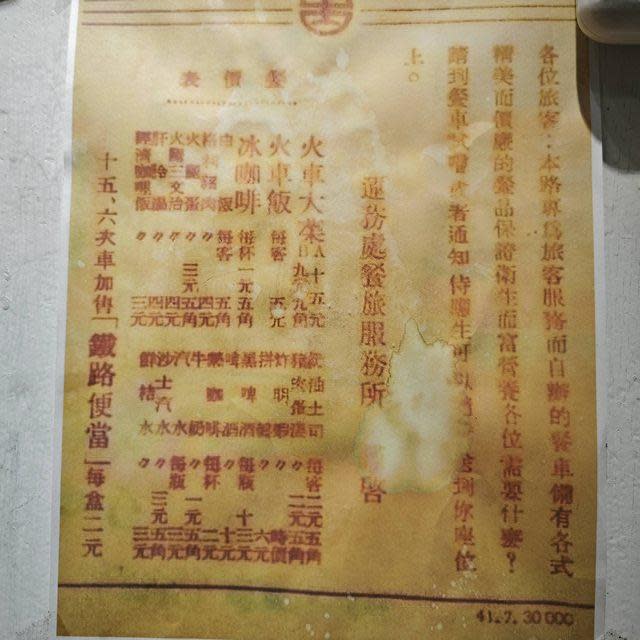 各位旅客：本路專為旅客服務而自辦的餐車備有各式
精美而價廉的餐品保證衛生而富營養各位需要什麼？
請到餐車 或者通知侍應生可以 送到你座位
上。
運務處餐旅服務所 啓
餐價表
火車大菜A十五元
B九元九角
火車飯 每客 五元
冰咖啡 每杯一元五角
白飯 每客 五角
格利猪肉 〃 四元
火腿蛋 〃 三元五角
火腿三文治 〃 四元
肝 湯 〃 四元
經濟咖哩飯 〃 三元
奶油土司 每客二元五角
猪肉蛋湯 五角
炸明蝦 〃 時價
拼盤 〃 六元
黑啤酒 每瓶十三元
啤酒 〃 十元
熱咖啡 每杯 二元
牛奶 〃 一元五角
汽水 每瓶 三元五角
沙士汽水 〃 三元五角
鮮桔水 〃 三元
十五、六次車加售「鐵路便當」每盒二元
41.7.30000